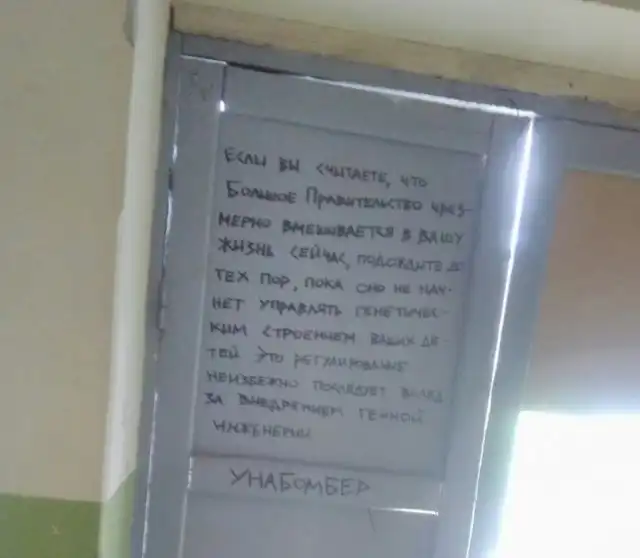 ЕСЛИ ВЫ СЧИТАЕТЕ, ЧТО
БОЛЬШОЕ ПРАВИТЕЛЬСТВО ЧРЕЗ-
МЕРНО ВМЕШИВАЕТСЯ В ВАШУ
ЖИЗНЬ СЕЙЧАС, ПОДОЖДИТЕ ДО
ТЕХ ПОР, ПОКА ОНО НЕ НАЧ-
НЕТ УПРАВЛЯТЬ ГЕНЕТИЧЕС-
КИМ СТРОЕНИЕМ ВАШИХ ДЕ-
ТЕЙ ЭТО РЕГУЛИРОВАНИЕ
НЕИЗБЕЖНО ПОСЛЕДУЕТ ВСЛЕД
ЗА ВНЕДРЕНИЕМ ГЕННОЙ
ИНЖЕНЕРИИ
УНАБОМБЕР